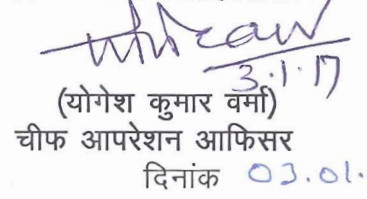 3.1.17
(योगेश कुमार वर्मा)
चीफ आपरेशन आफिसर
दिनांक 03.01.